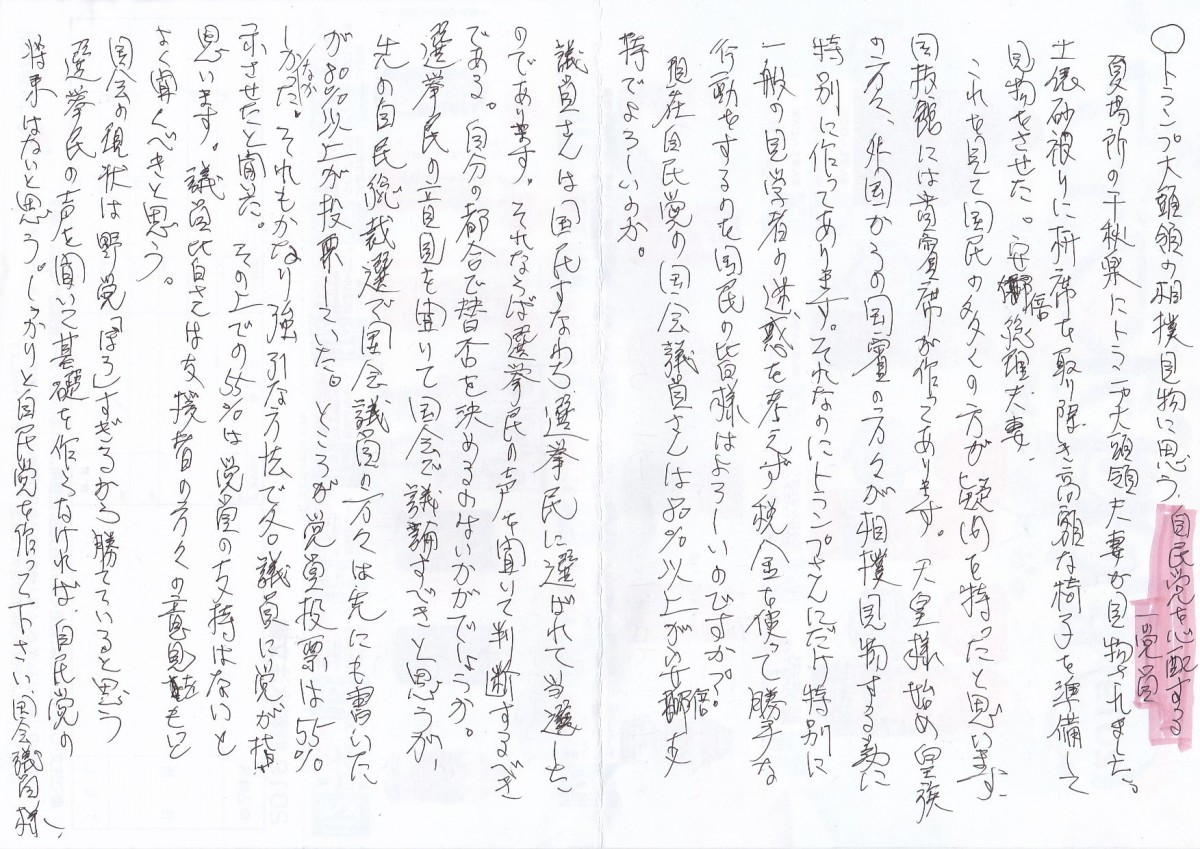 ○トランプ大頭領の相撲見物に思う、自民党心配する
党員
夏場所の千秋楽にトランプ大頭領夫妻が見物されました。
土俵砂被りに桝席を取り除き高額な椅子を準備して
見物をさせた。安倍総理夫妻、
これを見て国民の多くの方が疑問を持ったと思います。
国技館には貴賓席が作ってあります。天皇様始め皇族
の方々、外国からの国賓の方々が相撲見物する為に
特別に作ってあります。それなのにトランプさんにだけ特別に
一般の見学者の迷惑を考えず税金を使って勝手な
行動をするのを国民の皆様はよろしいのですか?。
現在自民党の国会議員さんは80%以上が安倍支
持でよろしいのか。
議員さんは国民すなわち選挙民に選ばれて当選した
のであります。それならば選挙民の声を聞いて判断するべき
である。自分の都合で賛否を決めるのはいかがでしょうか。
選挙民の意見を聞いて国会で議論すべきと思うが、
先の自民総裁選で国会議員の方々は先にも書いた
が80%以上が投票していた。ところが党員投票は55%
しかなかった。それもかなり強引な方法で各議員に党が指
示させたと聞いた。その上での55%は党員の支持はないと
思います。議員皆さんは支援者の方々の意見をもっと
よく聞くべきと思う。
国会の現状は野党「ぼろ」すぎるから勝てていると思う
選挙民の声を聞いて基礎を作らなければ、自民党の
将来はないと思う。しっかりと自民党を作って下さい、国会議員様、